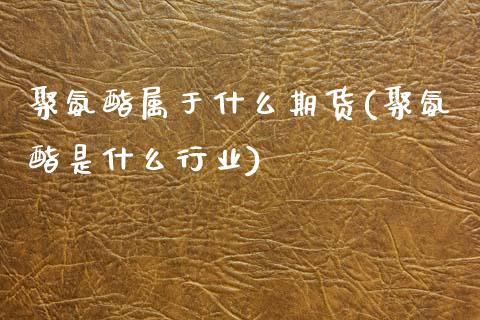 聚氨酯属于什么期货(聚氨
酯是什么行业)